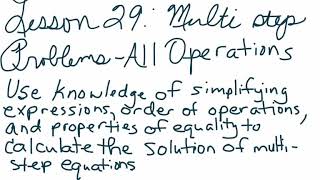 Lesson 29: Multi step
Problems-All Operations
Use knowledge of simplifying
expressions, order of operations,
and properties of equality to
calculate the solution of multi-
step equations